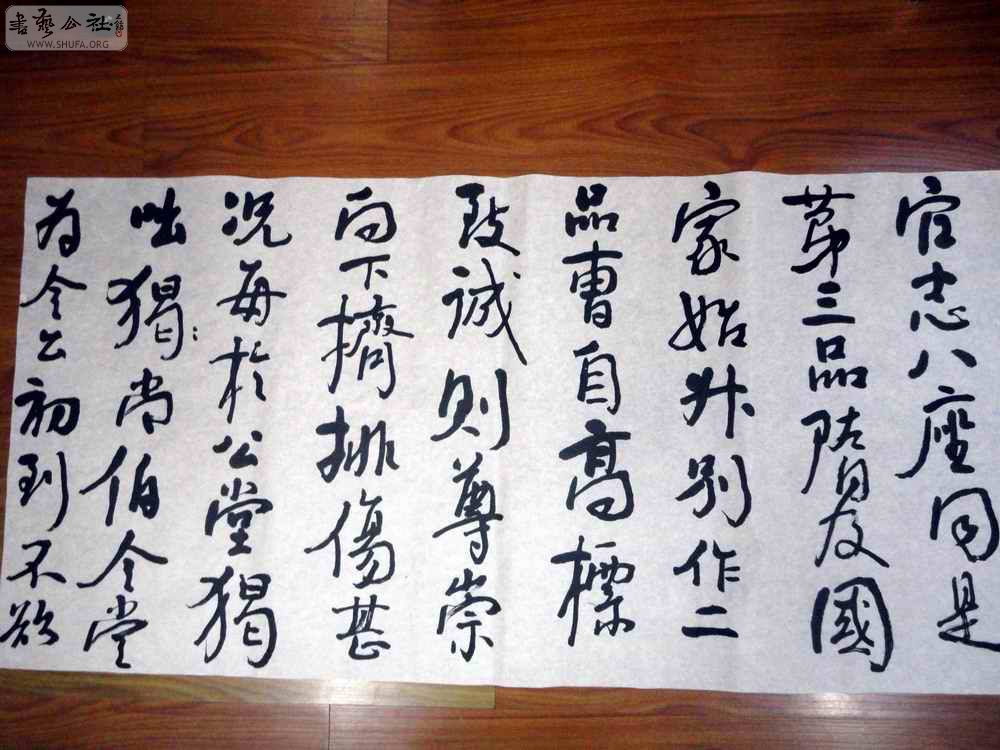 官志八座同是
苐三品隋及國
家始升別作二
品曹自高標
致誠則尊崇
向下擠排傷甚
况每於公堂猲
咄猲尚伯令當
为令公初到不欲
書藝公社
WWW.SHUFA.ORG